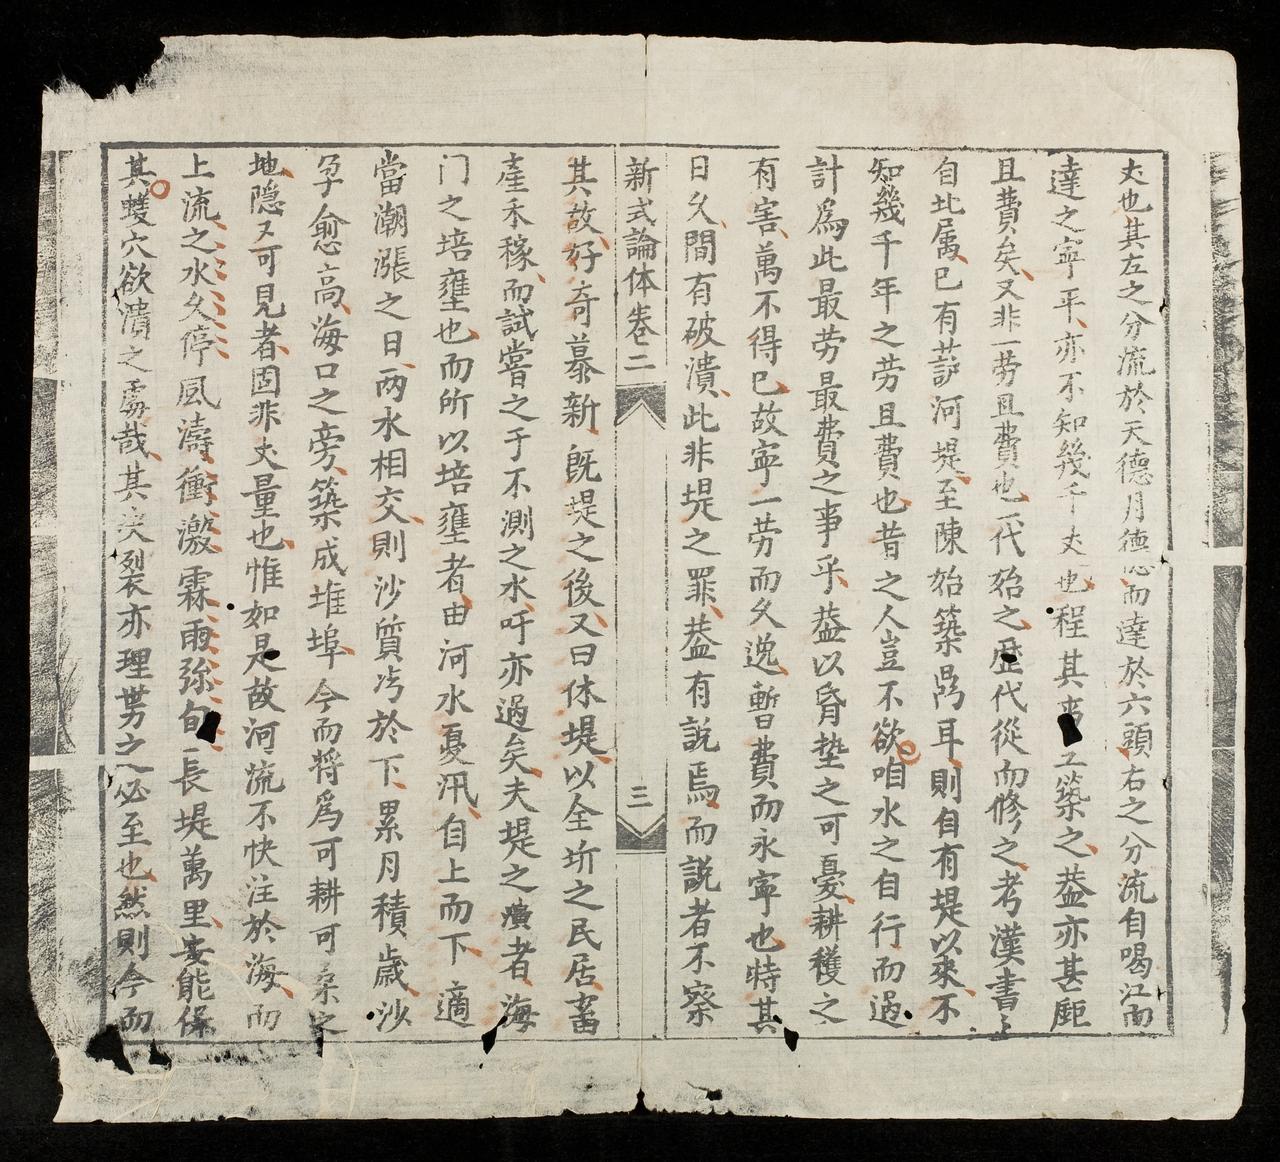 丈也其左之分流於天德月德而達於六頭右之分流自喝江而
達之寧平亦不知幾千丈也程其事工築之葢亦甚鉅
且費矣又非一劳且費也一代始之歴代從而修之考漢書上
自北属已有䓑河堤至陳始築門耳則自有堤以來不
知幾千年之劳且費也昔之人豈不欲咱水之自行而過
計爲此最劳最費之事乎葢以昏垫之可憂耕穫之
有害萬不得已故寧一劳而久逸暫費而永寧也特其
日久間有破潰此非堤之罪葢有説焉而説者不察
新式論体卷二 三
其故好奇慕新既堤之後又曰休堤以全圻之民居畜
產禾稼而試嘗之于不測之水吁亦過矣夫堤之潰者海
门之培壅也而所以培壅者由河水憂汛自上而下適
當潮漲之日两水相交則沙質冯於下累月積歳沙
孕愈高海口之旁築成堆埠今而將爲可耕可桑之
地隐又可見者固非丈量也惟如是故河流不快注於海而
上流之水久停風濤衝激霖雨弥旬長堤萬里安能保
其螻穴欲潰之處哉其决裂亦理势之必至也然則今而